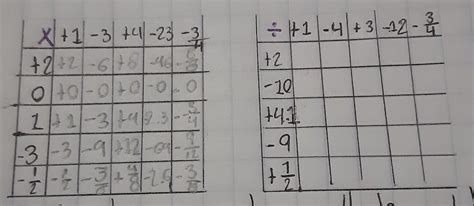 x +1 -3 +4 -23 -3/4
+2 +2 -6 +8 -46
0 +0 -0 +0 -0 0
1 +1 -3 +4
-3 -3 -9 +12 -69 -9/12
-1/2 -1/2 -3/6 +4/8 -3/8
÷ +1 -4 +3 -12 -3/4
+2
-10
+41
-9
+1/2